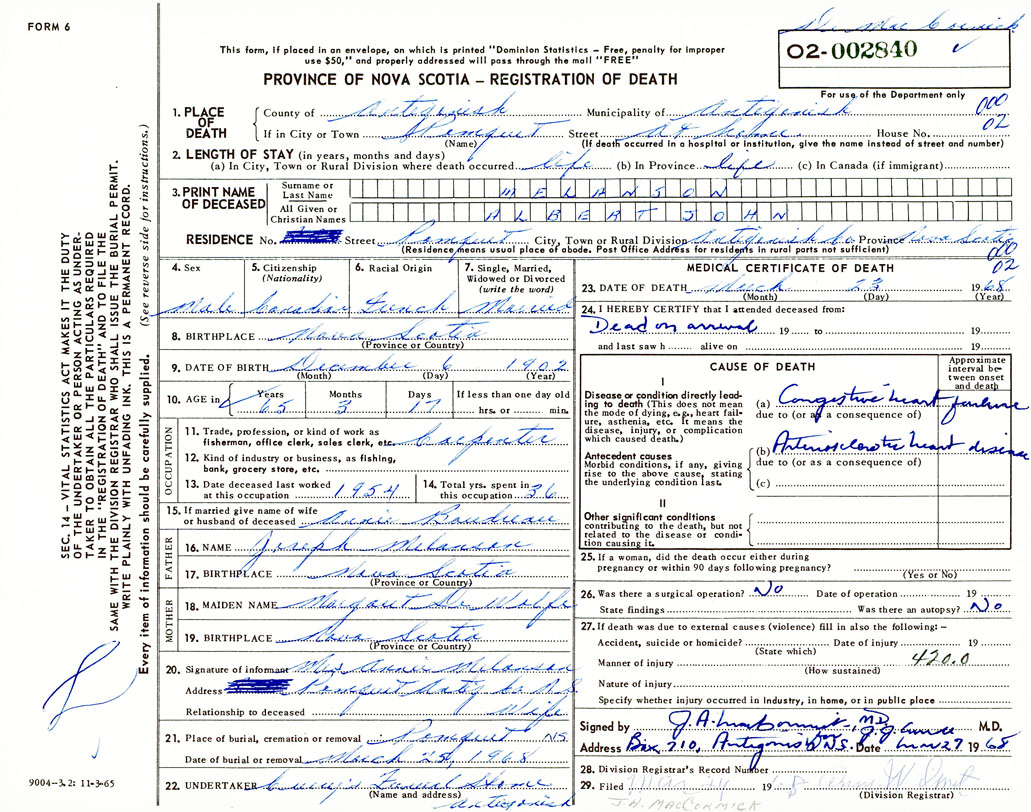 FORM 6
Dr Mac Cormick
This form, if placed in an envelope, on which is printed "Dominion Statistics – Free, penalty for improper
use $50," and properly addressed will pass through the mail "FREE"
02-002840 ✓
PROVINCE OF NOVA SCOTIA – REGISTRATION OF DEATH
For use of the Department only
000
02
1. PLACE OF DEATH
County of Antigonish Municipality of Antigonish
If in City or Town Pomquet Street At home House No.
(Name) (If death occurred in a hospital or institution, give the name instead of street and number)
2. LENGTH OF STAY (in years, months and days)
(a) In City, Town or Rural Division where death occurred life (b) In Province life (c) In Canada (if immigrant)
3. PRINT NAME OF DECEASED
Surname or Last Name MELANSON
All Given or Christian Names ALBERT JOHN
RESIDENCE No. Street Pomquet City, Town or Rural Division Antigonish Co Province Nova Scotia
(Residence means usual place of abode. Post Office Address for residents in rural parts not sufficient)
000
02
4. Sex Male
5. Citizenship (Nationality) Canadian
6. Racial Origin French
7. Single, Married, Widowed or Divorced (write the word) Married
8. BIRTHPLACE Nova Scotia
(Province or Country)
9. DATE OF BIRTH December 6 1902
(Month) (Day) (Year)
10. AGE in Years 65 Months 3 Days 17 If less than one day old hrs. or min.
OCCUPATION
11. Trade, profession, or kind of work as fisherman, office clerk, sales clerk, etc. Carpenter
12. Kind of industry or business, as fishing, bank, grocery store, etc.
13. Date deceased last worked at this occupation 1954
14. Total yrs. spent in this occupation 36
15. If married give name of wife or husband of deceased Annie Boudreau
FATHER
16. NAME Joseph Melanson
17. BIRTHPLACE Nova Scotia
(Province or Country)
MOTHER
18. MAIDEN NAME Margaret De Wolfe
19. BIRTHPLACE Nova Scotia
(Province or Country)
20. Signature of informant Mrs Annie Melanson
Address Pomquet Antig Co N.S.
Relationship to deceased Wife
21. Place of burial, cremation or removal Pomquet N.S.
Date of burial or removal March 25, 1968
22. UNDERTAKER Funeral Home
(Name and address) Antigonish
MEDICAL CERTIFICATE OF DEATH
23. DATE OF DEATH March 23 1968
(Month) (Day) (Year)
24. I HEREBY CERTIFY that I attended deceased from:
Dead on arrival 19 to 19
and last saw h alive on 19
CAUSE OF DEATH
Approximate interval between onset and death
I
Disease or condition directly leading to death (This does not mean the mode of dying, e.g., heart failure, asthenia, etc. It means the disease, injury, or complication which caused death.)
(a) Congestive heart failure
due to (or as a consequence of)
Antecedent causes
Morbid conditions, if any, giving rise to the above cause, stating the underlying condition last.
(b) Arteriosclerotic heart disease
due to (or as a consequence of)
(c)
II
Other significant conditions
contributing to the death, but not related to the disease or condition causing it.
25. If a woman, did the death occur either during pregnancy or within 90 days following pregnancy?
(Yes or No)
26. Was there a surgical operation? No Date of operation 19
State findings Was there an autopsy? No
27. If death was due to external causes (violence) fill in also the following: –
Accident, suicide or homicide? Date of injury 19
(State which)
Manner of injury 420.0
(How sustained)
Nature of injury
Specify whether injury occurred in industry, in home, or in public place
Signed by M.D. M.D.
Address Box 210, Antigonish N.S. Date Mar 27 1968
28. Division Registrar's Record Number
29. Filed 19
(Division Registrar)
J.A. MACCORMICK
SEC. 14 – VITAL STATISTICS ACT MAKES IT THE DUTY
OF THE UNDERTAKER OR PERSON ACTING AS UNDER-
TAKER TO OBTAIN ALL THE PARTICULARS REQUIRED
IN THE "REGISTRATION OF DEATH" AND TO FILE THE
SAME WITH THE DIVISION REGISTRAR WHO SHALL ISSUE THE BURIAL PERMIT.
WRITE PLAINLY WITH UNFADING INK. THIS IS A PERMANENT RECORD.
Every item of information should be carefully supplied. (See reverse side for instructions.)
9004-3.2: 11-3-65